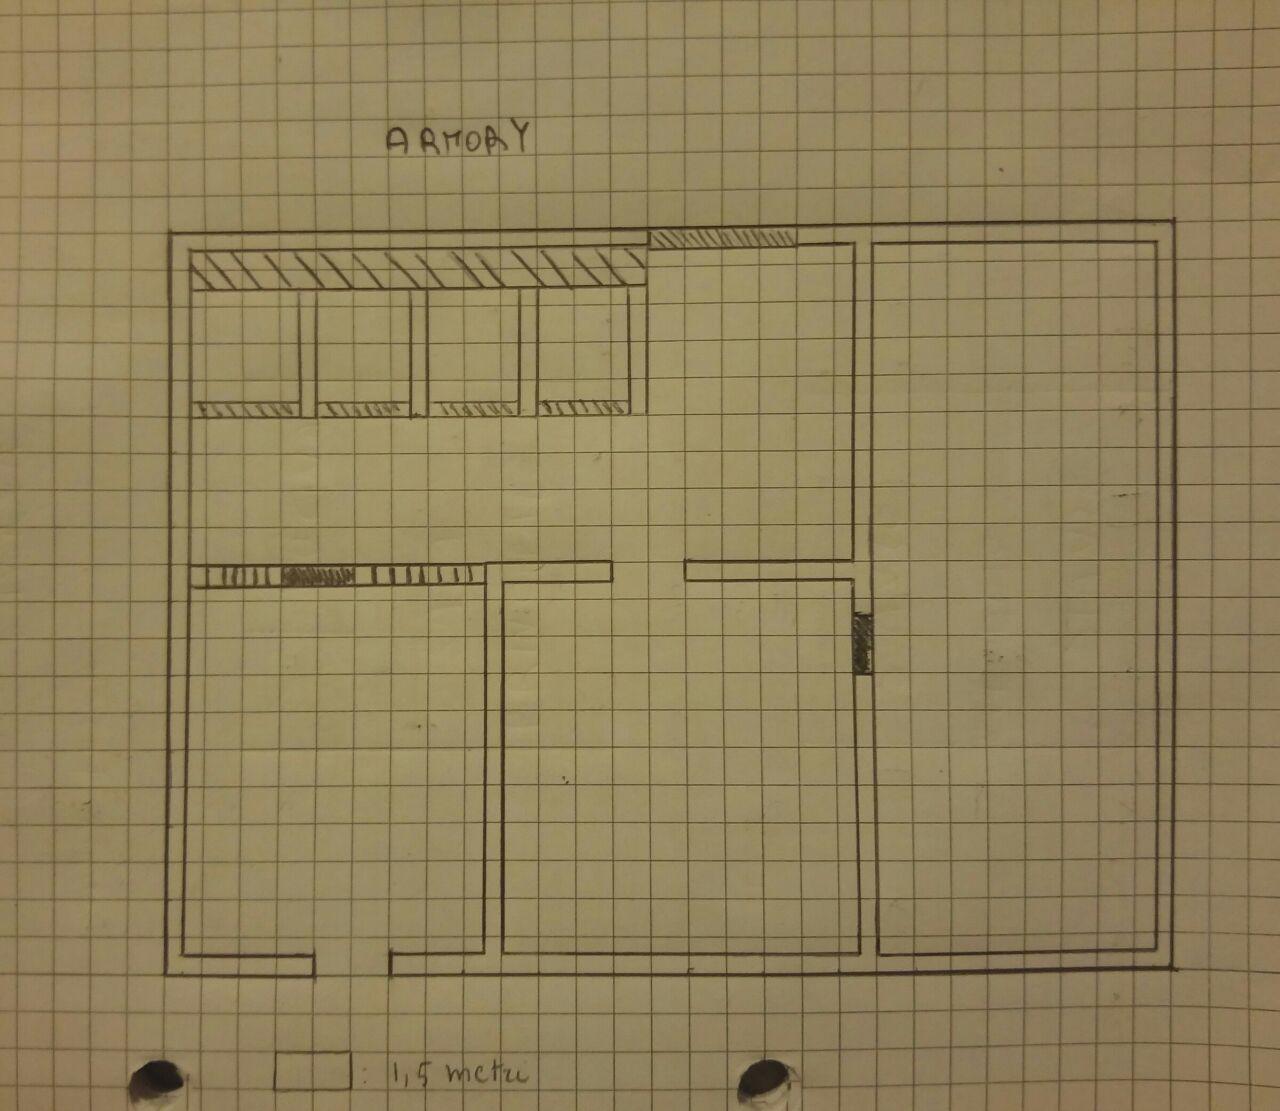 ARMORY
: 1,5 metri